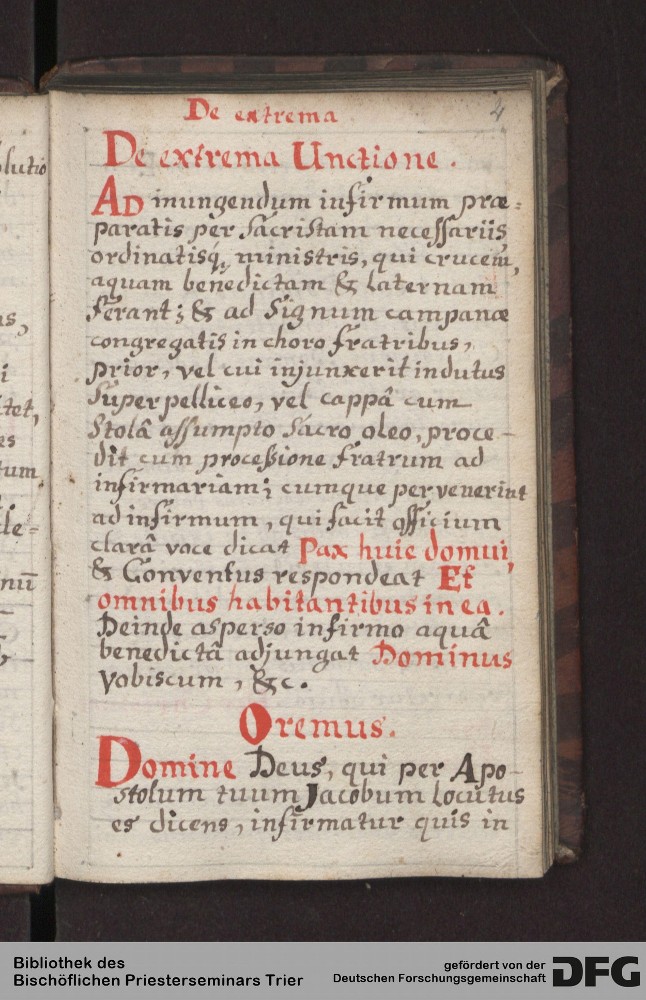 De extrema
4
De extrema Unctione.
AD inungendum infirmum præ=
paratis per Sacristam necessariis
ordinatisq́; ministris, qui crucem,
aquam benedictam & laternam
ferant; & ad Signum campanæ
congregatis in choro fratribus,
prior, vel cui injunxerit indutus
Superpelliceo, vel cappâ cum
Stolâ assumpto Sacro oleo, proce-
dit cum processione fratrum ad
infirmariam; cumque pervenerint
ad infirmum, qui facit officium
clarâ voce dicat Pax huic domui,
& Conventus respondeat Et
omnibus habitantibus in ea.
Deinde asperso infirmo aquâ
benedictâ adjungat Dominus
vobiscum, &c.
Oremus.
Domine Deus, qui per Apo-
stolum tuum Jacobum locutus
es dicens, infirmatur quis in
Bibliothek des
Bischöflichen Priesterseminars Trier
gefördert von der
Deutschen Forschungsgemeinschaft
DFG